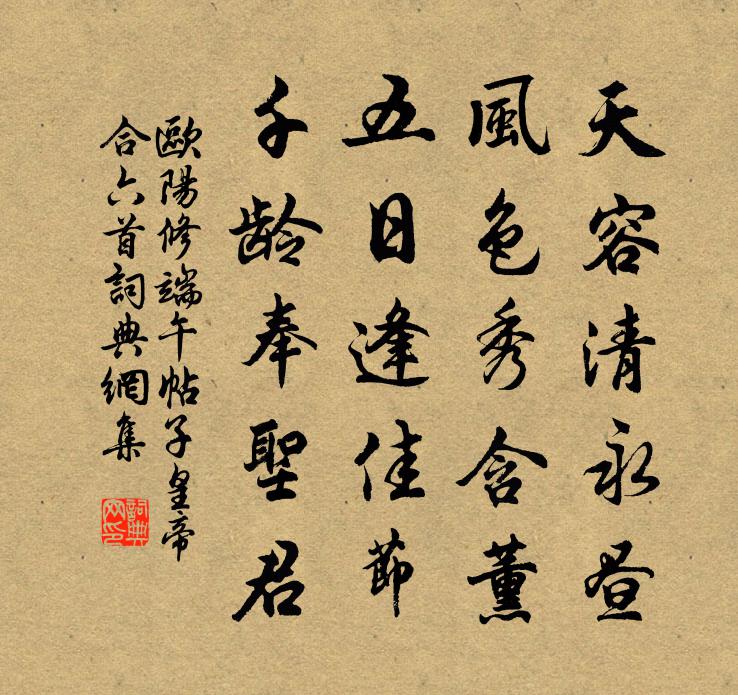 天容清永昼
風色秀含薰
五日逢佳節
千龄奉聖君
歐陽修端午帖子皇帝
合六首詞典網集
詞典
网印